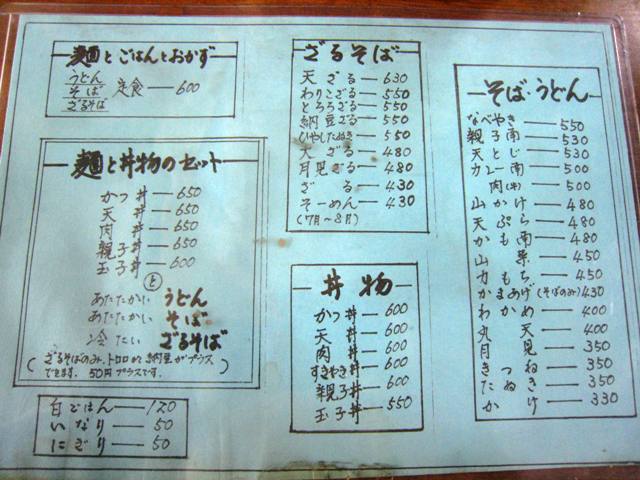 麺とごはんとおかず
うどん
そば 定食 — 600
ざるそば
麺と丼物のセット
かつ丼 — 650
天丼 — 650
肉丼 — 650
親子丼 — 650
玉子丼 — 600
と
あたたかい うどん
あたたかい そば
冷たい ざるそば
(ざるそばのみ、トロロめと納豆がプラス
できます。50円プラスです。)
白ごはん — 120
いなり — 50
にぎり — 50
ざるそば
天ざる — 630
わりこざる — 550
とろろざる — 550
納豆ざる — 550
ひやしたぬき — 550
大ざる — 480
月見ざる — 480
ざる — 430
そーめん — 430
(7月〜8月)
丼物
かつ丼 — 600
天丼 — 600
肉丼 — 600
すきやき丼 — 600
親子丼 — 600
玉子丼 — 550
そば・うどん
なべやき — 550
親子南 — 530
天とじ — 530
カレー南 — 500
肉(牛) — 500
山かけ — 480
天ぷら — 480
かも南 — 480
山菜 — 450
力もち — 450
かまあげ(そばのみ) 430
わかめ — 400
丸天 — 400
月見 — 350
きつね — 350
たぬき — 350
かけ — 330